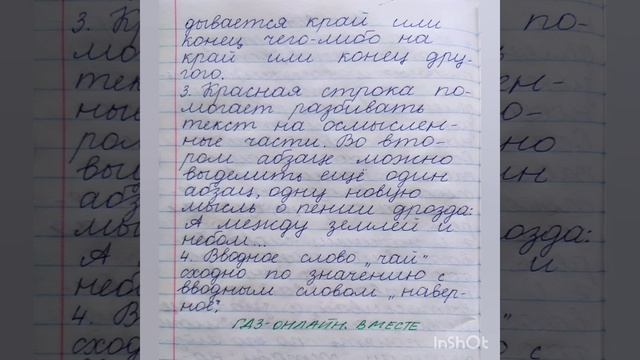 дывается край или
конец чего-либо на
край или конец дру-
гого.
3. Красная строка по-
могает разбивать
текст на осмыслен-
ные части. Во вто-
ром абзаце можно
выделить ещё один
абзац, одну новую
мысль о пении дрозда:
А между землёй и
небом...
4. Вводное слово „чай"
сходно по значению с
вводным словом „навер-
ное".
ГДЗ-ОНЛАЙН. ВМЕСТЕ
InShOt